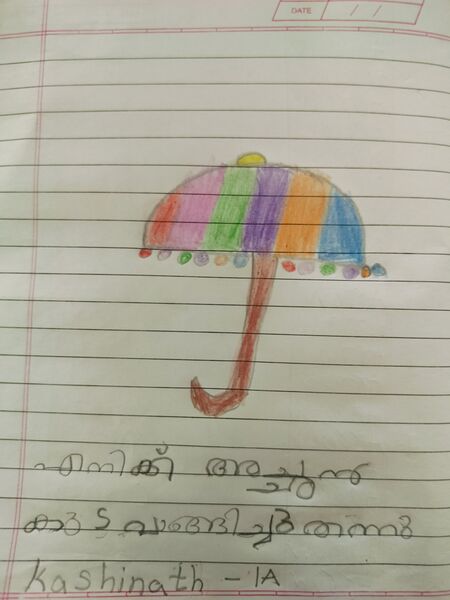 DATE
എനിക്ക് അച്ചൻ
കുട വാങ്ങിച്ചു തന്നു
Kashinath - 1A